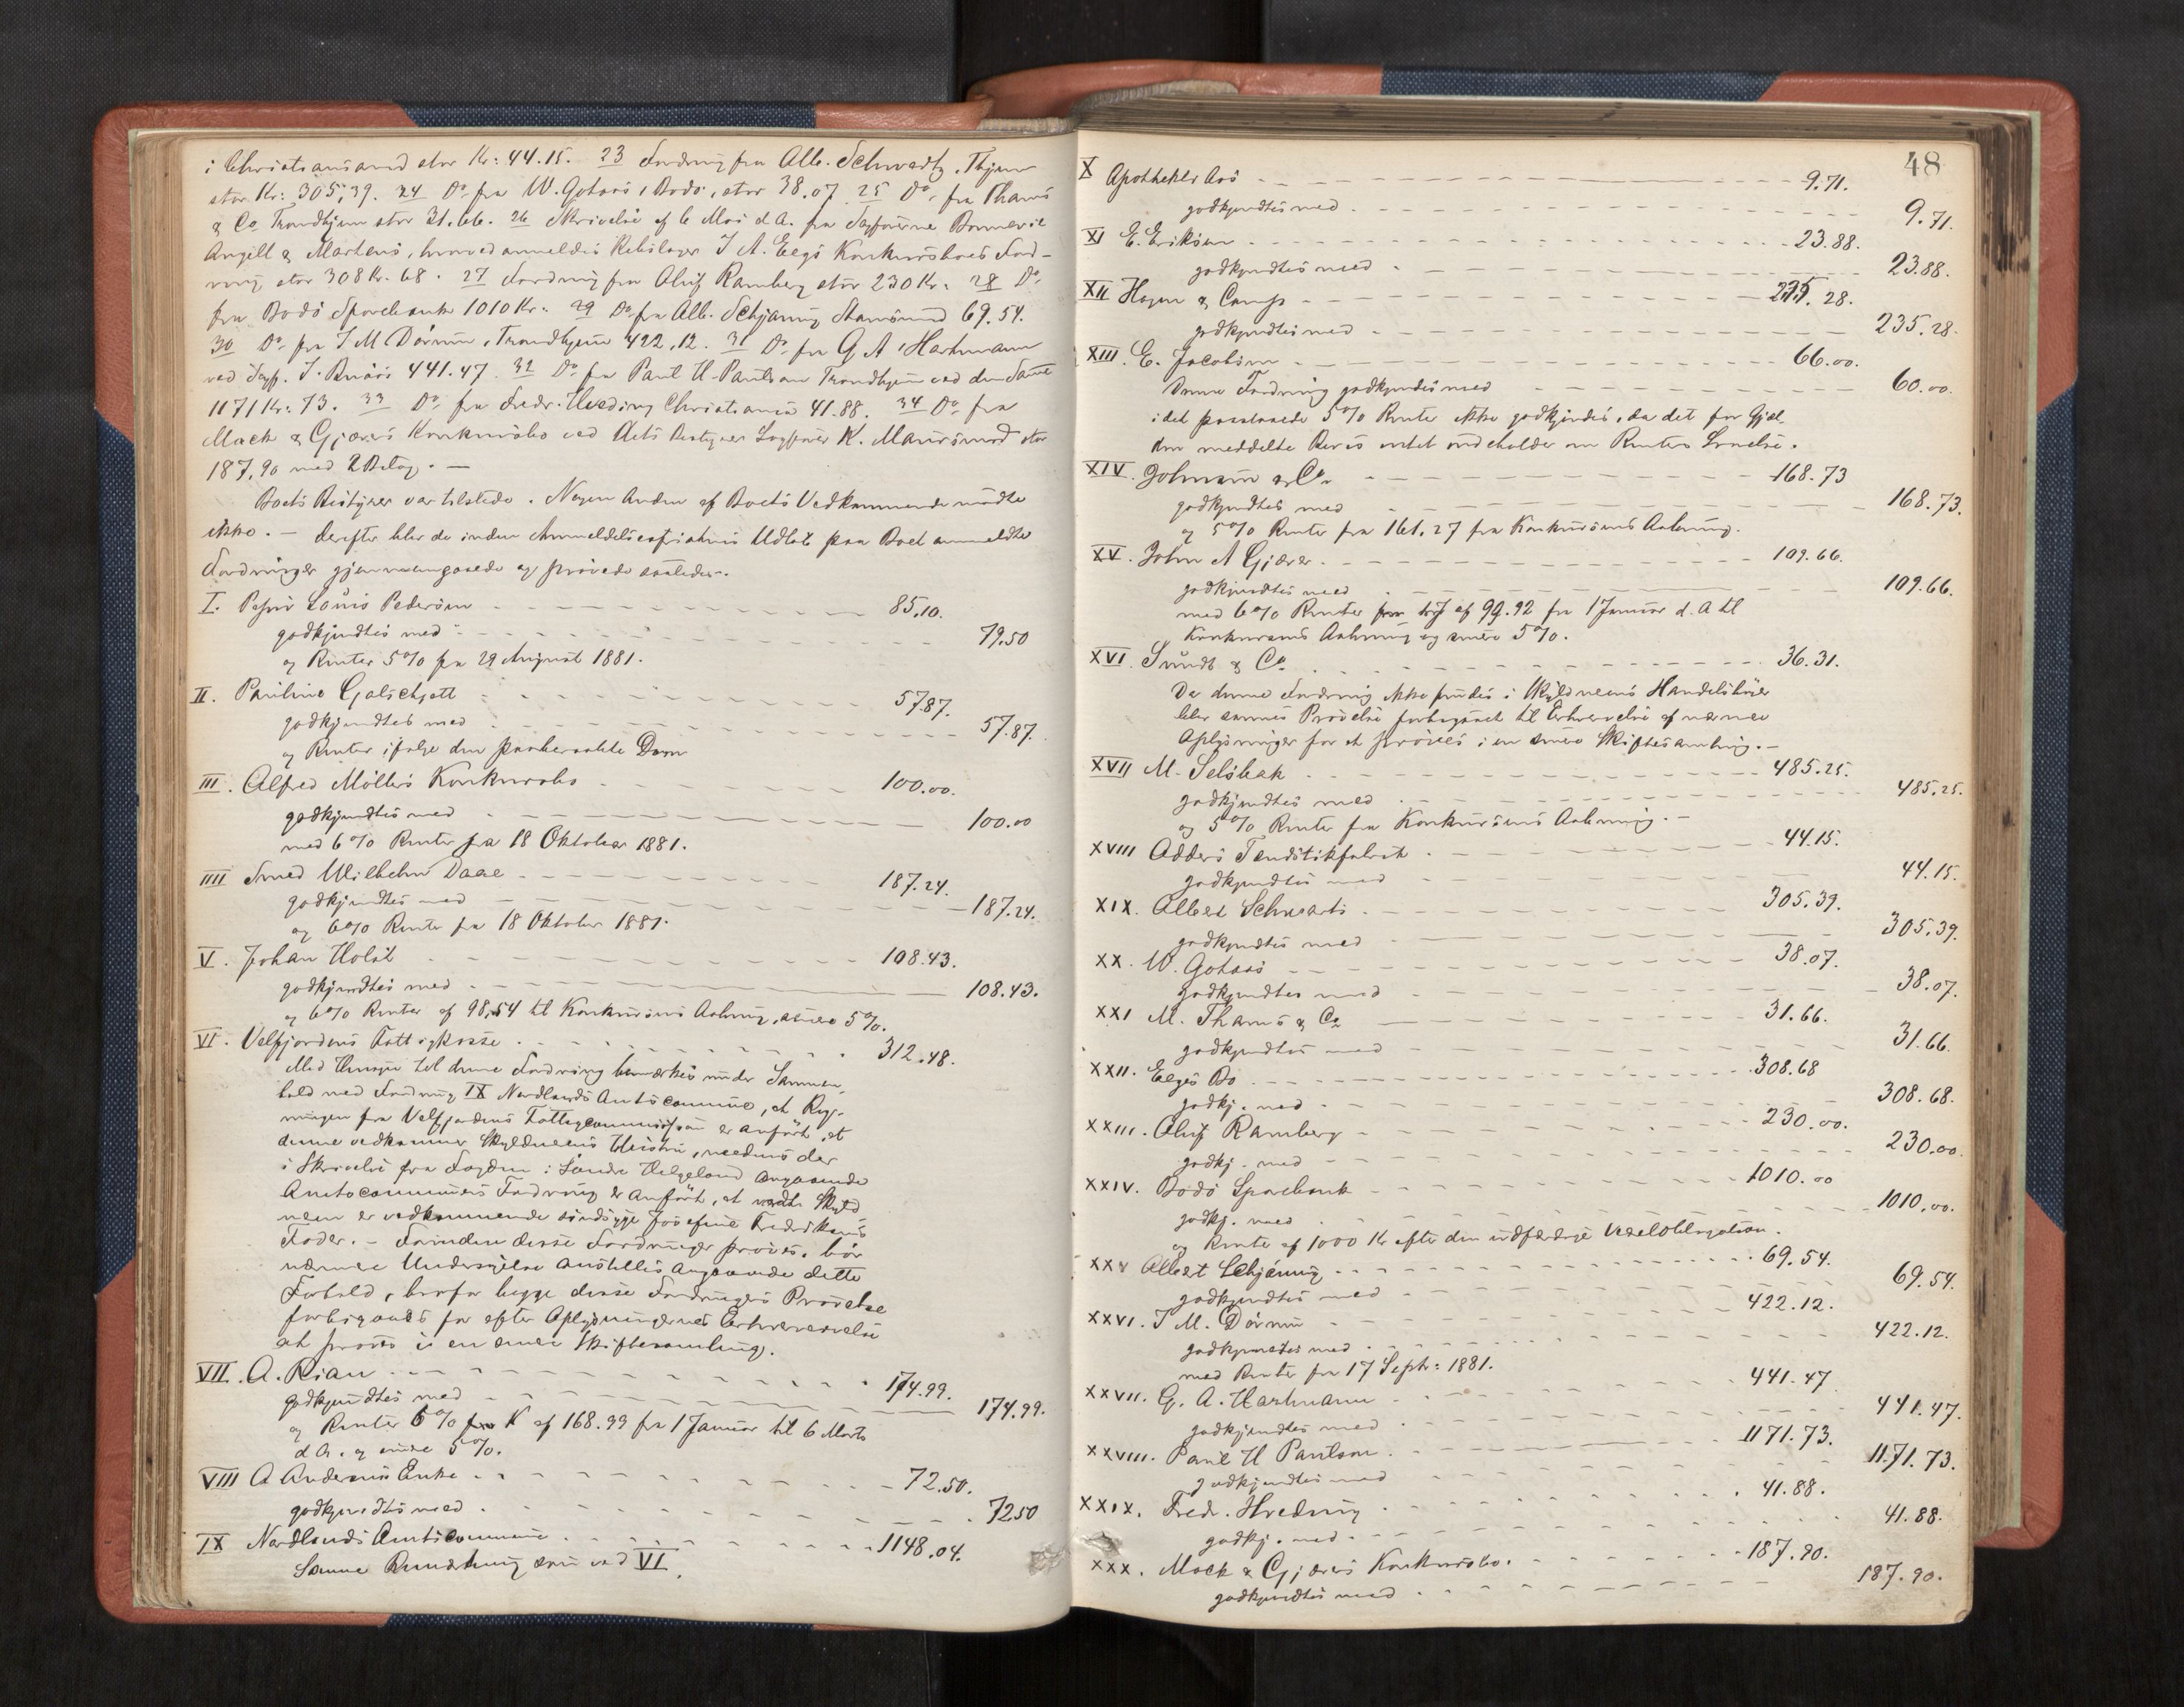 i Christiansand stor Kr: 44.15. 23 Fordring fra Alb. Schwartz, Thjem
stor Kr: 305,39. 24 Do fra W. Gotaas, Bodö, stor 38.07 25 Do, fra Thams
& Co Trondhjem stor 31.66. 26 Skrivelse af 6 Mai d.A. fra Sagförerne
Angell & Martens, hvorved anmeldes Rebslager J A. Eegs Konkursboes Ford-
ring stor 308 Kr. 68. 27 Fordring fra Oluf Ramberg stor 230 Kr. 28 Do
fra Bodö Sparebank 1010 Kr. 29 Do fra Alb. Schjöning Stamsund 69.54.
30 Do fra J M Dörum, Trondhjem 422,12. 31 Do fra G A Hartmann
ved Sagf. J. 441.47 32 Do fra Paul H Paulsen Trondhjem ved den Samme
1171 Kr: 73. 33 Do fra Fredr. Hveding Christiania 41.88. 34 Do fra
Mack & Gjærers Konkursbo ved dets Bestyrer Sagförer K. stor
187,90 med 2 Bilag. —
Boets Bestyrer var tilstede. Nogen Anden af Boets Vedkommende mödte
ikke. — Derefter blev de inden Anmeldelsesfristens Udløb paa Boet anmeldte
Fordringer gjennemgaaede og prövede saaledes.
I. Louis Pedersen 85,10.
godkjendtes med 79.50
og Renter 5% fra 29 August 1881.
II. Pauline Galschjött 57.87.
godkjendtes med 57.87.
og Renter ifølge den paaberaabte Dom
III. Alfred Möllers Konkursbo 100.00.
godkjendtes med 100.00
med 6% Renter fra 18 Oktober 1881.
IIII Smed Wilhelm Daae 187.24.
godkjendtes med 187.24.
og 6% Renter fra 18 Oktober 1881.
V. Johan Holst 108.43.
godkjendtes med 108.43.
og 6% Renter af 98,54 til Konkursens Aabning, senere 5%.
VI. Velfjordens Fattigkasse 312.48.
Med Hensyn til denne Fordring bemærkes under Sammen-
hold med Fordring IX Nordlands Amtscommune, at Reg-
ningen fra Velfjordens Fattigcommission er anført, at
denne vedkommer Skyldnerens Hustru, medens der
i Skrivelse fra Fogden i Söndre Helgeland angaaende
Amtscommunens Fordring er anført, at Skyld
neren er vedkommende sindssyge Josefine Fredriksens
Fader. — Forinden disse Fordringer pröves, bör
nærmere Undersögelse anstilles angaaende dette
Forhold, hvorfor begge disse Fordringers Prövelse
forbigaaes for efter Oplysningernes Erhvervelse
at pröves i en senere Skiftesamling.
VII. A. Rian 174.99.
godkjendtes med 174.99.
og Renter 6% af 168.99 fra 1 Januar til 6 Marts
d A. og senere 5%.
VIII A Andersens Enke 72.50.
godkjendtes med 72.50
IX Nordlands Amtscommune 1148.04.
Samme Bemærkning som ved VI.
48
X Apotheker Aas 9.71.
godkjendtes med 9.71.
XI E. Eriksen 23.88.
godkjendtes med 23.88.
XII Hagen & Comp 235.28.
godkjendtes med 235.28.
XIII. E. Jacobsen 66.00.
Denne Fordring godkjendtes med 60.00.
idet paastaaede 5% Renter ikke godkjendes, da det for Gjæl-
den meddelte Bevis intet indeholder om Renters Svarelse.
XIV. Johnsen & Co. 168.73
godkjendtes med 168.73.
og 5% Renter fra 161.27 fra Konkursens Aabning.
XV. John A Gjærer 109.66.
godkjendtes med 109.66.
med 6% Renter af 99.92 fra 1 Januar d. A til
Konkursens Aabning og senere 5%.
XVI. Sundt & Co. 36.31.
Da denne Fordring ikke findes i Skyldnerens Handelsböger
blev sammes Prövelse forbigaaet til Erhvervelse af nærmere
Oplysninger for at pröves i en senere Skiftesamling. —
XVII M. Selsbak 485.25.
godkjendtes med 485.25.
og 5% Renter fra Konkursens Aabning. —
XVIII Odders Tændstikfabrik 44.15.
godkjendtes med 44.15.
XIX. Albert Schwartz 305.39.
godkjendtes med 305.39.
XX. W. Gotaas 38.07.
godkjendtes med 38.07.
XXI M. Thams & Co 31.66.
godkjendtes med 31.66.
XXII. Eegs Bo 308.68
godkj. med 308.68.
XXIII. Oluf Ramberg 230.00.
godkj. med 230.00.
XXIV. Bodö Sparebank 1010.00
godkj. med 1010.00.
og Rente af 1000 Kr efter den udfærdige Vexelobligation.
XXV Albert Schjöning 69.54.
godkjendtes med 69.54.
XXVI. J M. Dörum 422.12.
godkjendtes med 422.12.
med Renter fra 17 Septr: 1881.
XXVII. G. A. Hartmann 441.47
godkjendtes med 441.47.
XXVIII. Paul H Paulsen 1171.73.
godkjendtes med 1171.73.
XXIX. Fredr. Hveding 41.88.
godkj. med 41.88.
XXX. Mack & Gjærers Konkursbo. 187.90.
godkjendtes med 187.90.